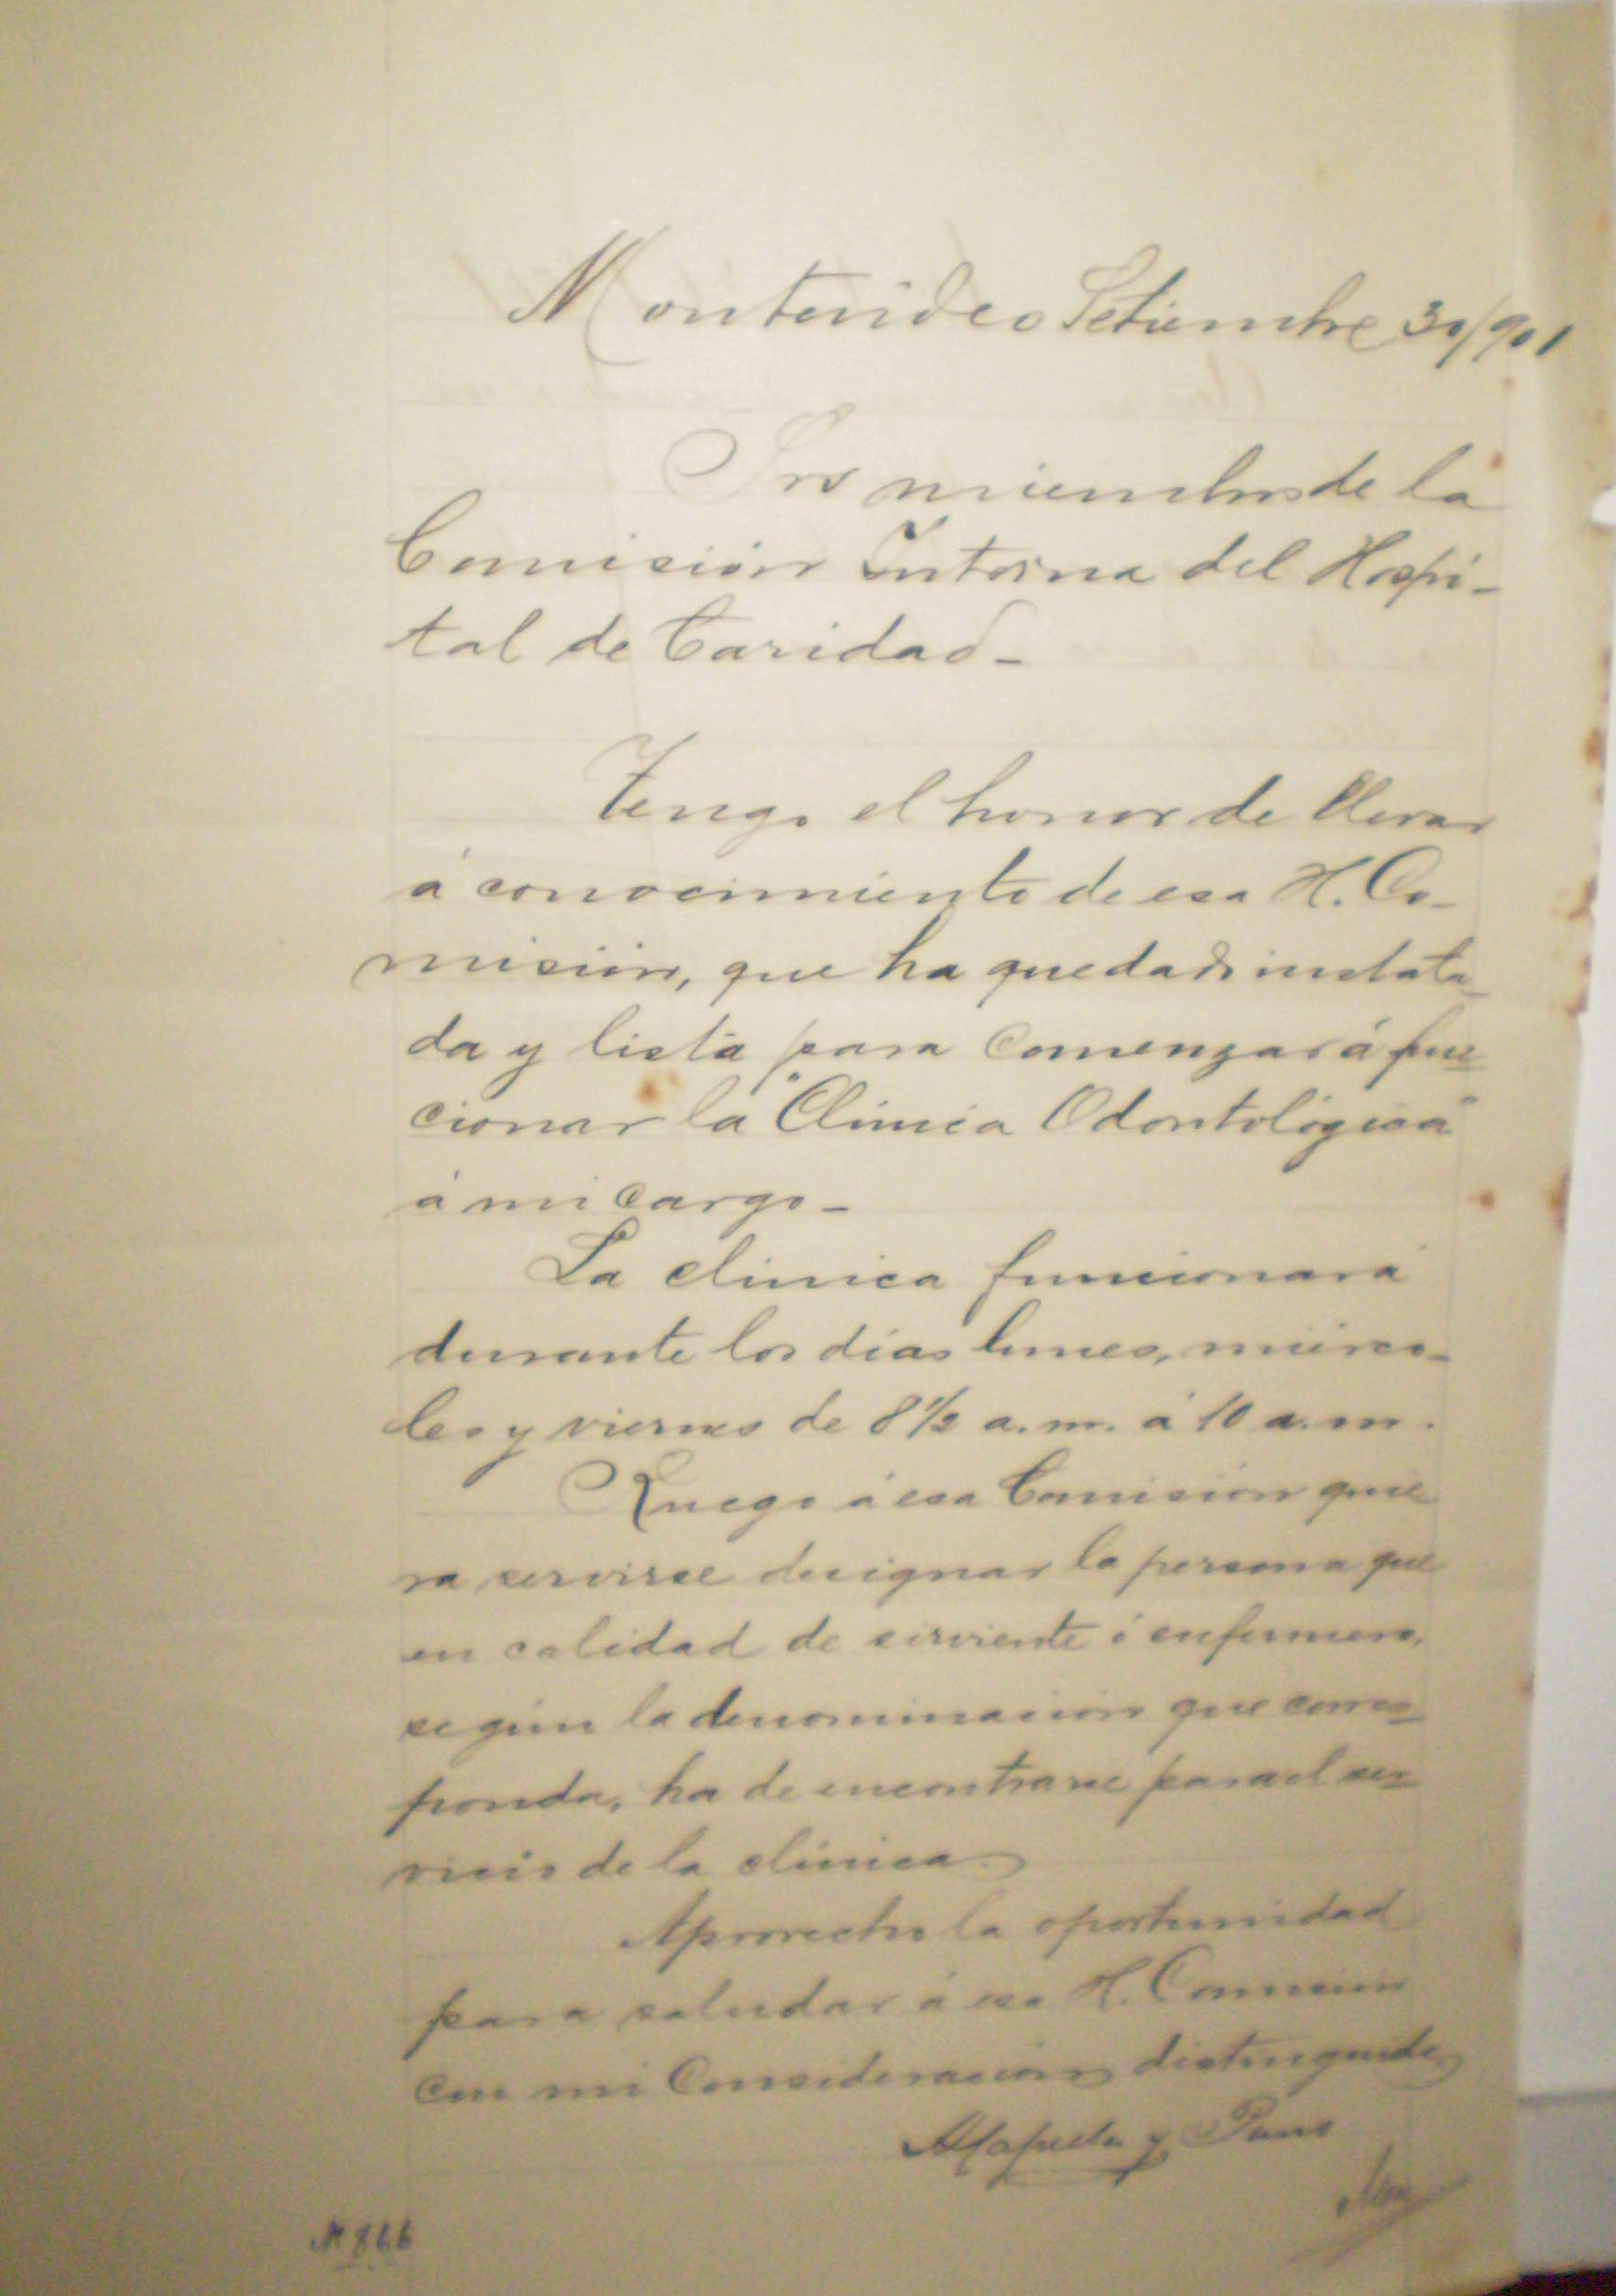 Montevideo Setiembre 30/901
Srs miembros de la
Comisión Interna del Hospi-
tal de Caridad-
Tengo el honor de llevar
á conocimiento de esa H. Co-
misión, que ha quedado instala
da y lista para comenzar á fun
cionar la "Clínica Odontológica"
á mi cargo-
La clínica funcionará
durante los días lunes, miérco-
les y viernes de 8 1/2 a.m. á 10 a.m.
Ruego á esa Comisión quie
ra servirse designar la persona que
en calidad de sirviente ó enfermero,
según la denominación que corres
ponda, ha de encontrarse para el ser
vicio de la clínica.
Aprovecho la oportunidad
para saludar á esa H. Comisión
con mi consideración distinguida
y
Nº 866